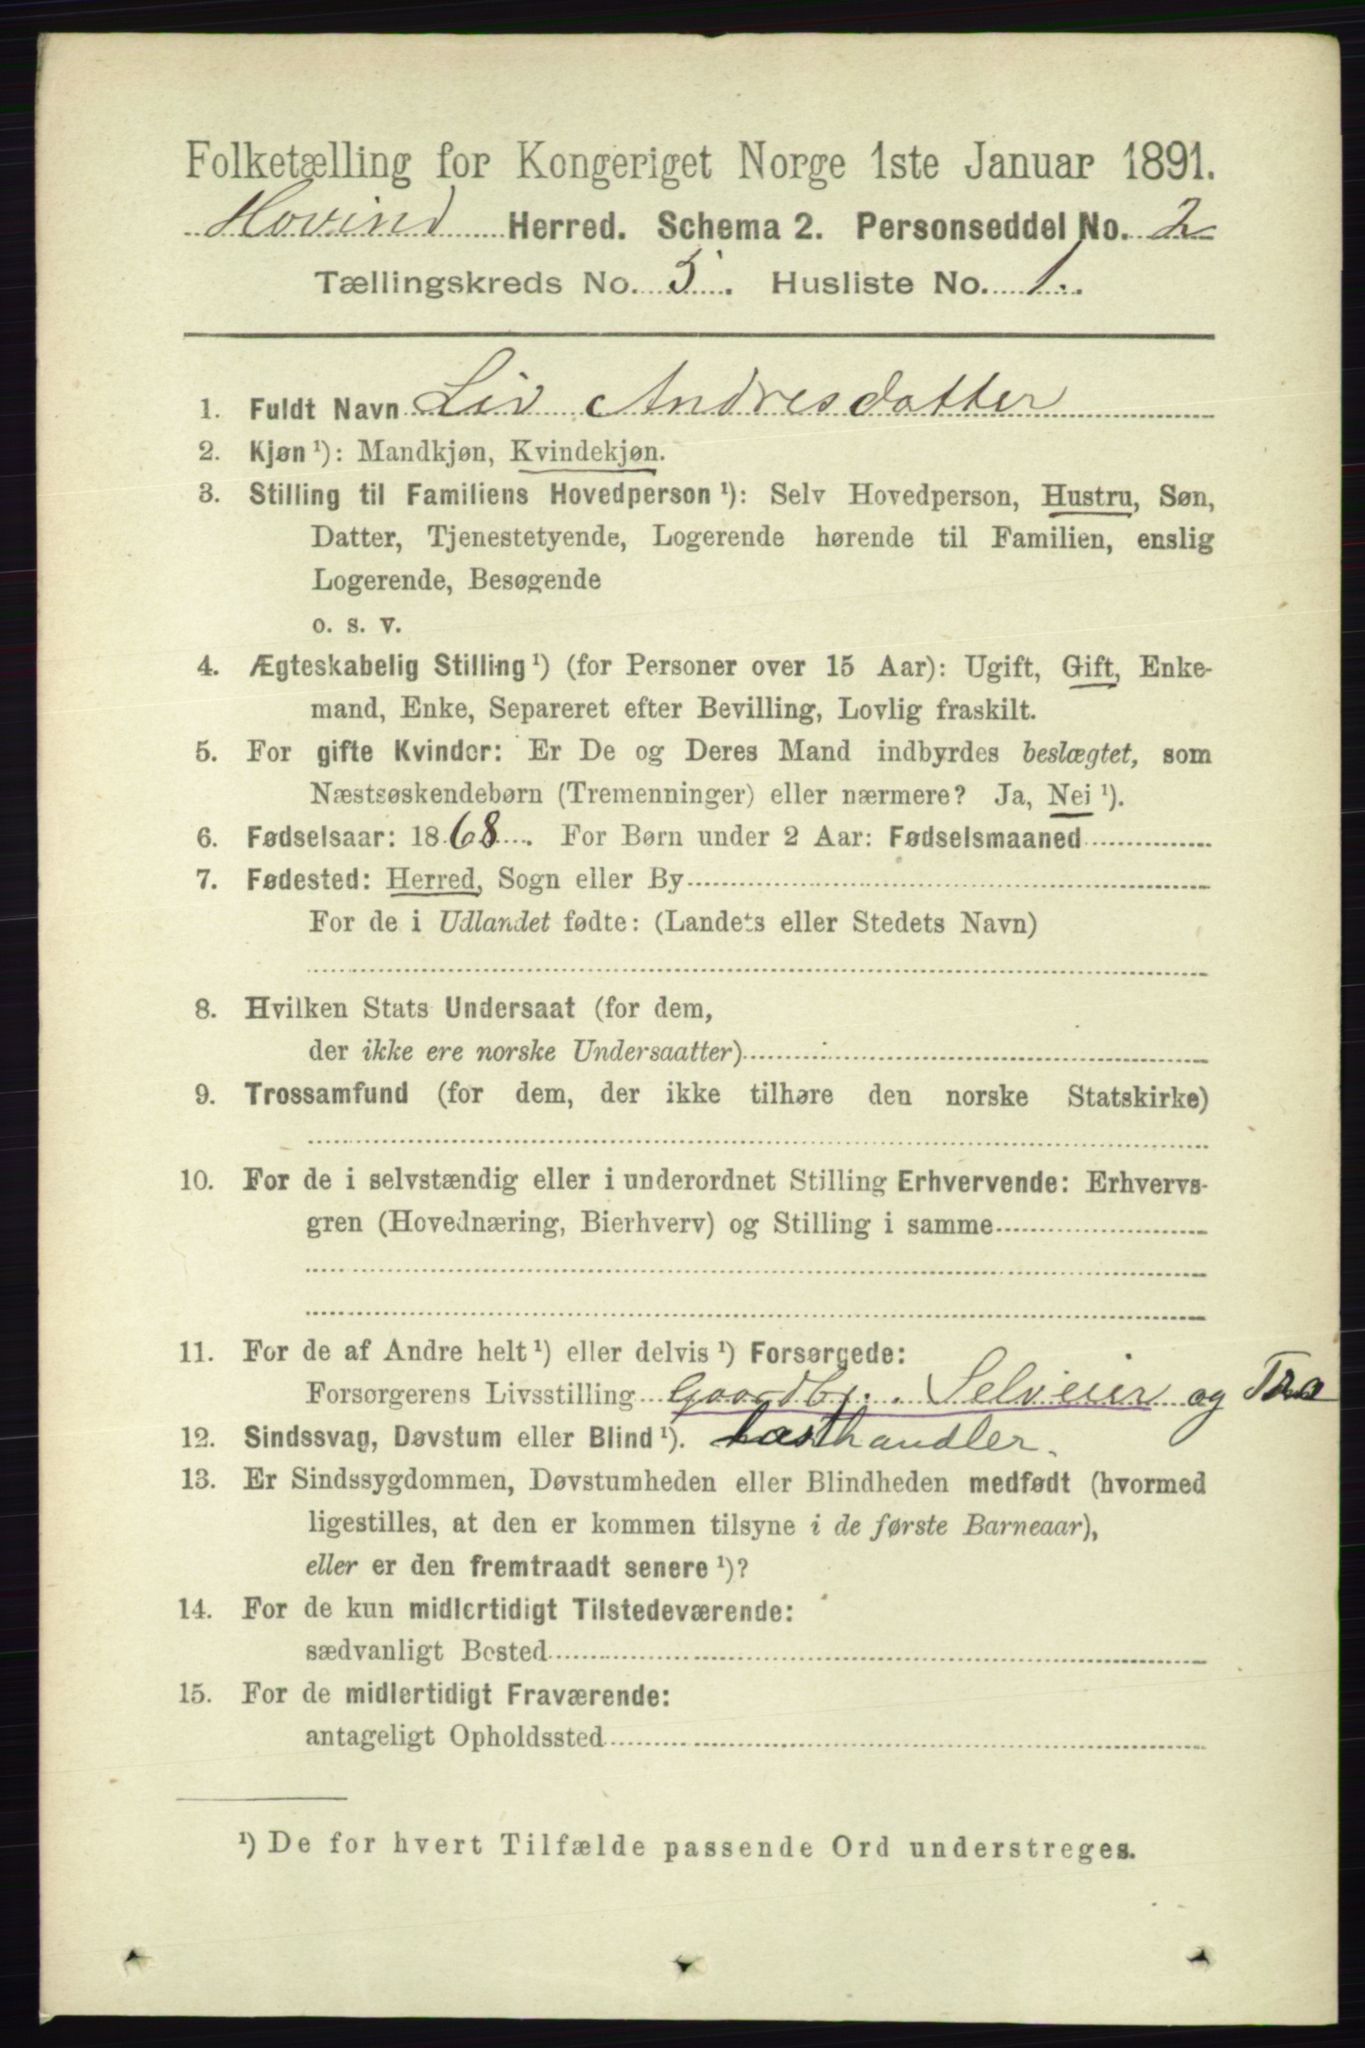 Folketælling for Kongeriget Norge 1ste Januar 1891.
Hovind Herred. Schema 2. Personseddel No. 2
Tællingskreds No. 5. Husliste No. 1.
1. Fuldt Navn Liv Andresdatter
2. Kjøn ¹): Mandkjøn, Kvindekjøn.
3. Stilling til Familiens Hovedperson ¹): Selv Hovedperson, Hustru, Søn,
Datter, Tjenestetyende, Logerende hørende til Familien, enslig
Logerende, Besøgende
o. s. v.
4. Ægteskabelig Stilling ¹) (for Personer over 15 Aar): Ugift, Gift, Enke-
mand, Enke, Separeret efter Bevilling, Lovlig fraskilt.
5. For gifte Kvinder: Er De og Deres Mand indbyrdes beslægtet, som
Næstsøskendebørn (Tremenninger) eller nærmere? Ja, Nei ¹).
6. Fødselsaar: 1868. For Børn under 2 Aar: Fødselsmaaned
7. Fødested: Herred, Sogn eller By
For de i Udlandet fødte: (Landets eller Stedets Navn)
8. Hvilken Stats Undersaat (for dem,
der ikke ere norske Undersaatter)
9. Trossamfund (for dem, der ikke tilhøre den norske Statskirke)
10. For de i selvstændig eller i underordnet Stilling Erhvervende: Erhvervs-
gren (Hovednæring, Bierhverv) og Stilling i samme
11. For de af Andre helt ¹) eller delvis ¹) Forsørgede:
Forsørgerens Livsstilling Gaardbr. Selveier og Træ
12. Sindssvag, Døvstum eller Blind ¹). lasthandler.
13. Er Sindssygdommen, Døvstumheden eller Blindheden medfødt (hvormed
ligestilles, at den er kommen tilsyne i de første Barneaar),
eller er den fremtraadt senere ¹)?
14. For de kun midlertidigt Tilstedeværende:
sædvanligt Bosted
15. For de midlertidigt Fraværende:
antageligt Opholdssted
¹) De for hvert Tilfælde passende Ord understreges.